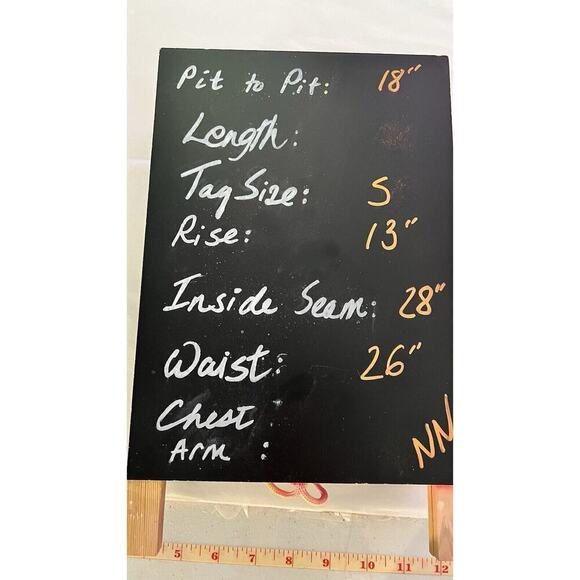 Pit to Pit: 18"
Length:
Tag Size: S
Rise: 13"
Inside Seam: 28"
Waist: 26"
Chest :
Arm :
NN
5 6 7 8 9 10 11 12